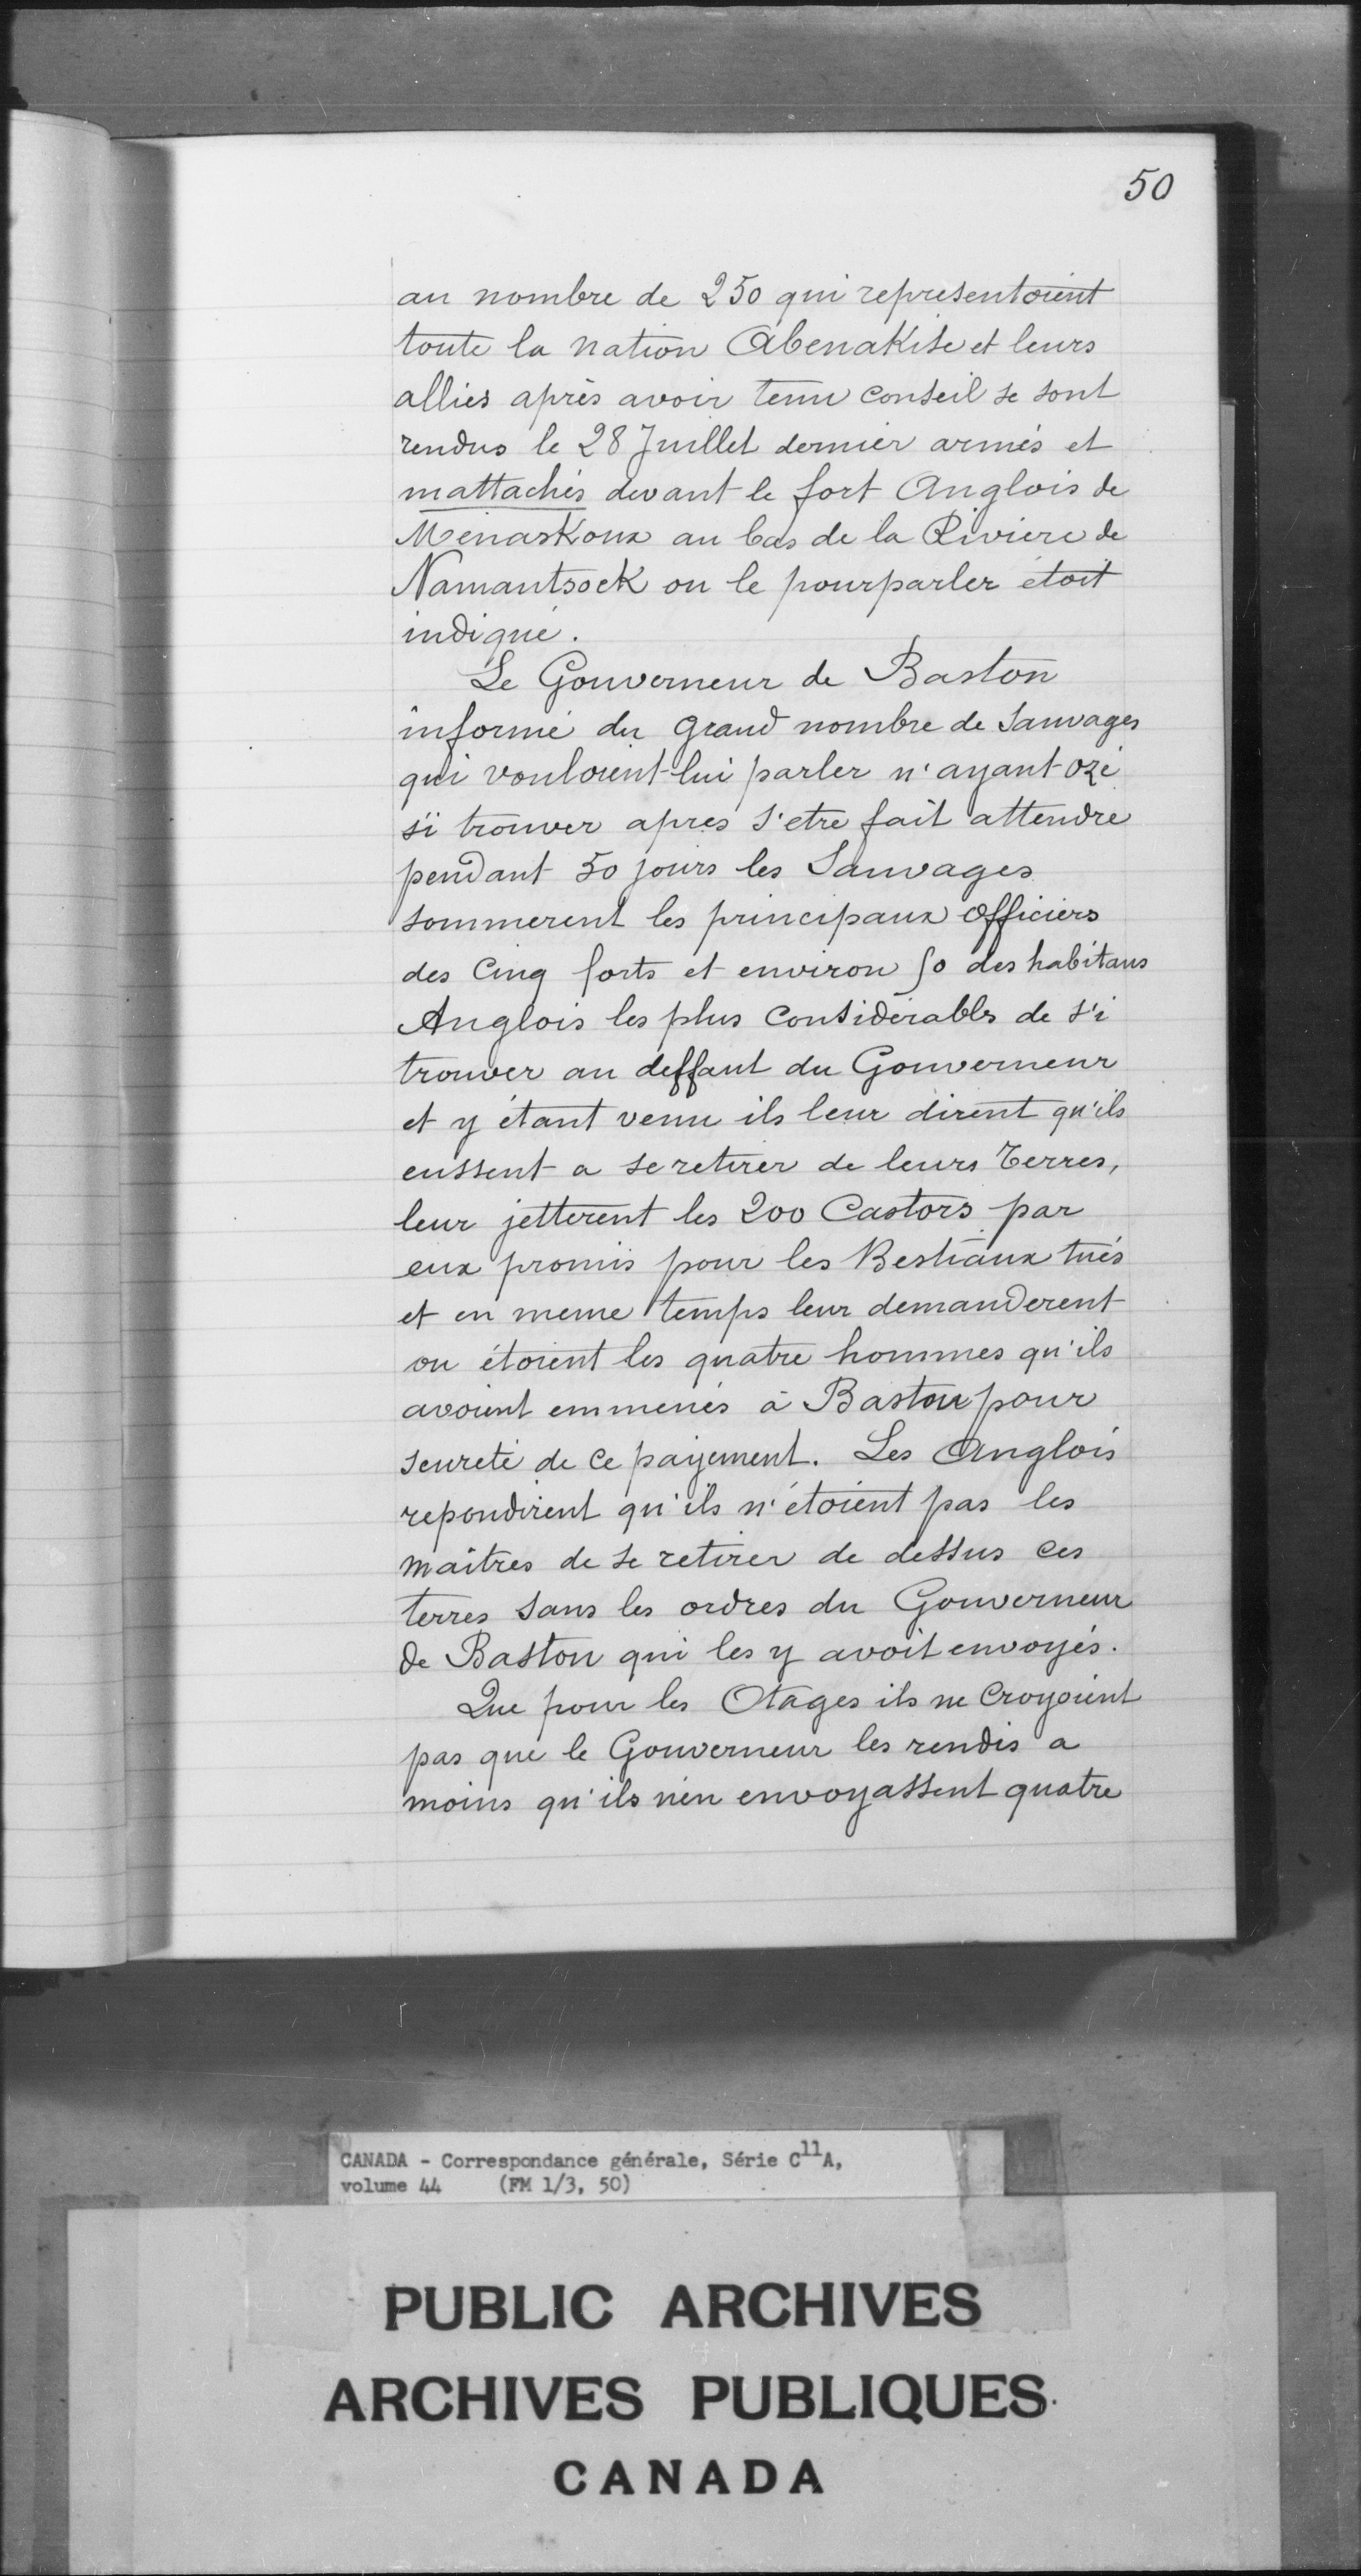 50
au nombre de 250 qui representoient
toute la nation Abenakise et leurs
alliés après avoir tenu conseil se sont
rendus le 28 Juillet dernier armés et
mattachés devant le fort Anglois de
Menaskoux au bas de la Riviere de
Namantsock ou le pourparler étoit
indiqué.
Le Gouverneur de Baston
informé du grand nombre de Sauvages
qui vouloient lui parler n'ayant ozé
s'i trouver apres s'etre fait attendre
pendant 50 jours les Sauvages
sommerent les principaux officiers
des Cinq forts et environ 50 des habitans
Anglois les plus Considérables de s'i
trouver au deffaut du Gouverneur
et y étant venu ils leur dirent qu'ils
eussent a se retirer de leurs Terres,
leur jetterent les 200 Castors par
eux promis pour les Bestiaux tués
et en meme temps leur demanderent
ou étoient les quatre hommes qu'ils
avoient emmenés à Baston pour
seureté de ce payement. Les Anglois
repondirent qu'ils n'étoient pas les
maitres de se retirer de dessus ces
terres sans les ordres du Gouverneur
de Baston qui les y avoit envoyés.
Que pour les Otages ils ne Croyoient
pas que le Gouverneur les rendis a
moins qu'ils n'en envoyassent quatre
CANADA - Correspondance générale, Série C11A,
volume 44 (FM 1/3, 50)
PUBLIC ARCHIVES
ARCHIVES PUBLIQUES
CANADA